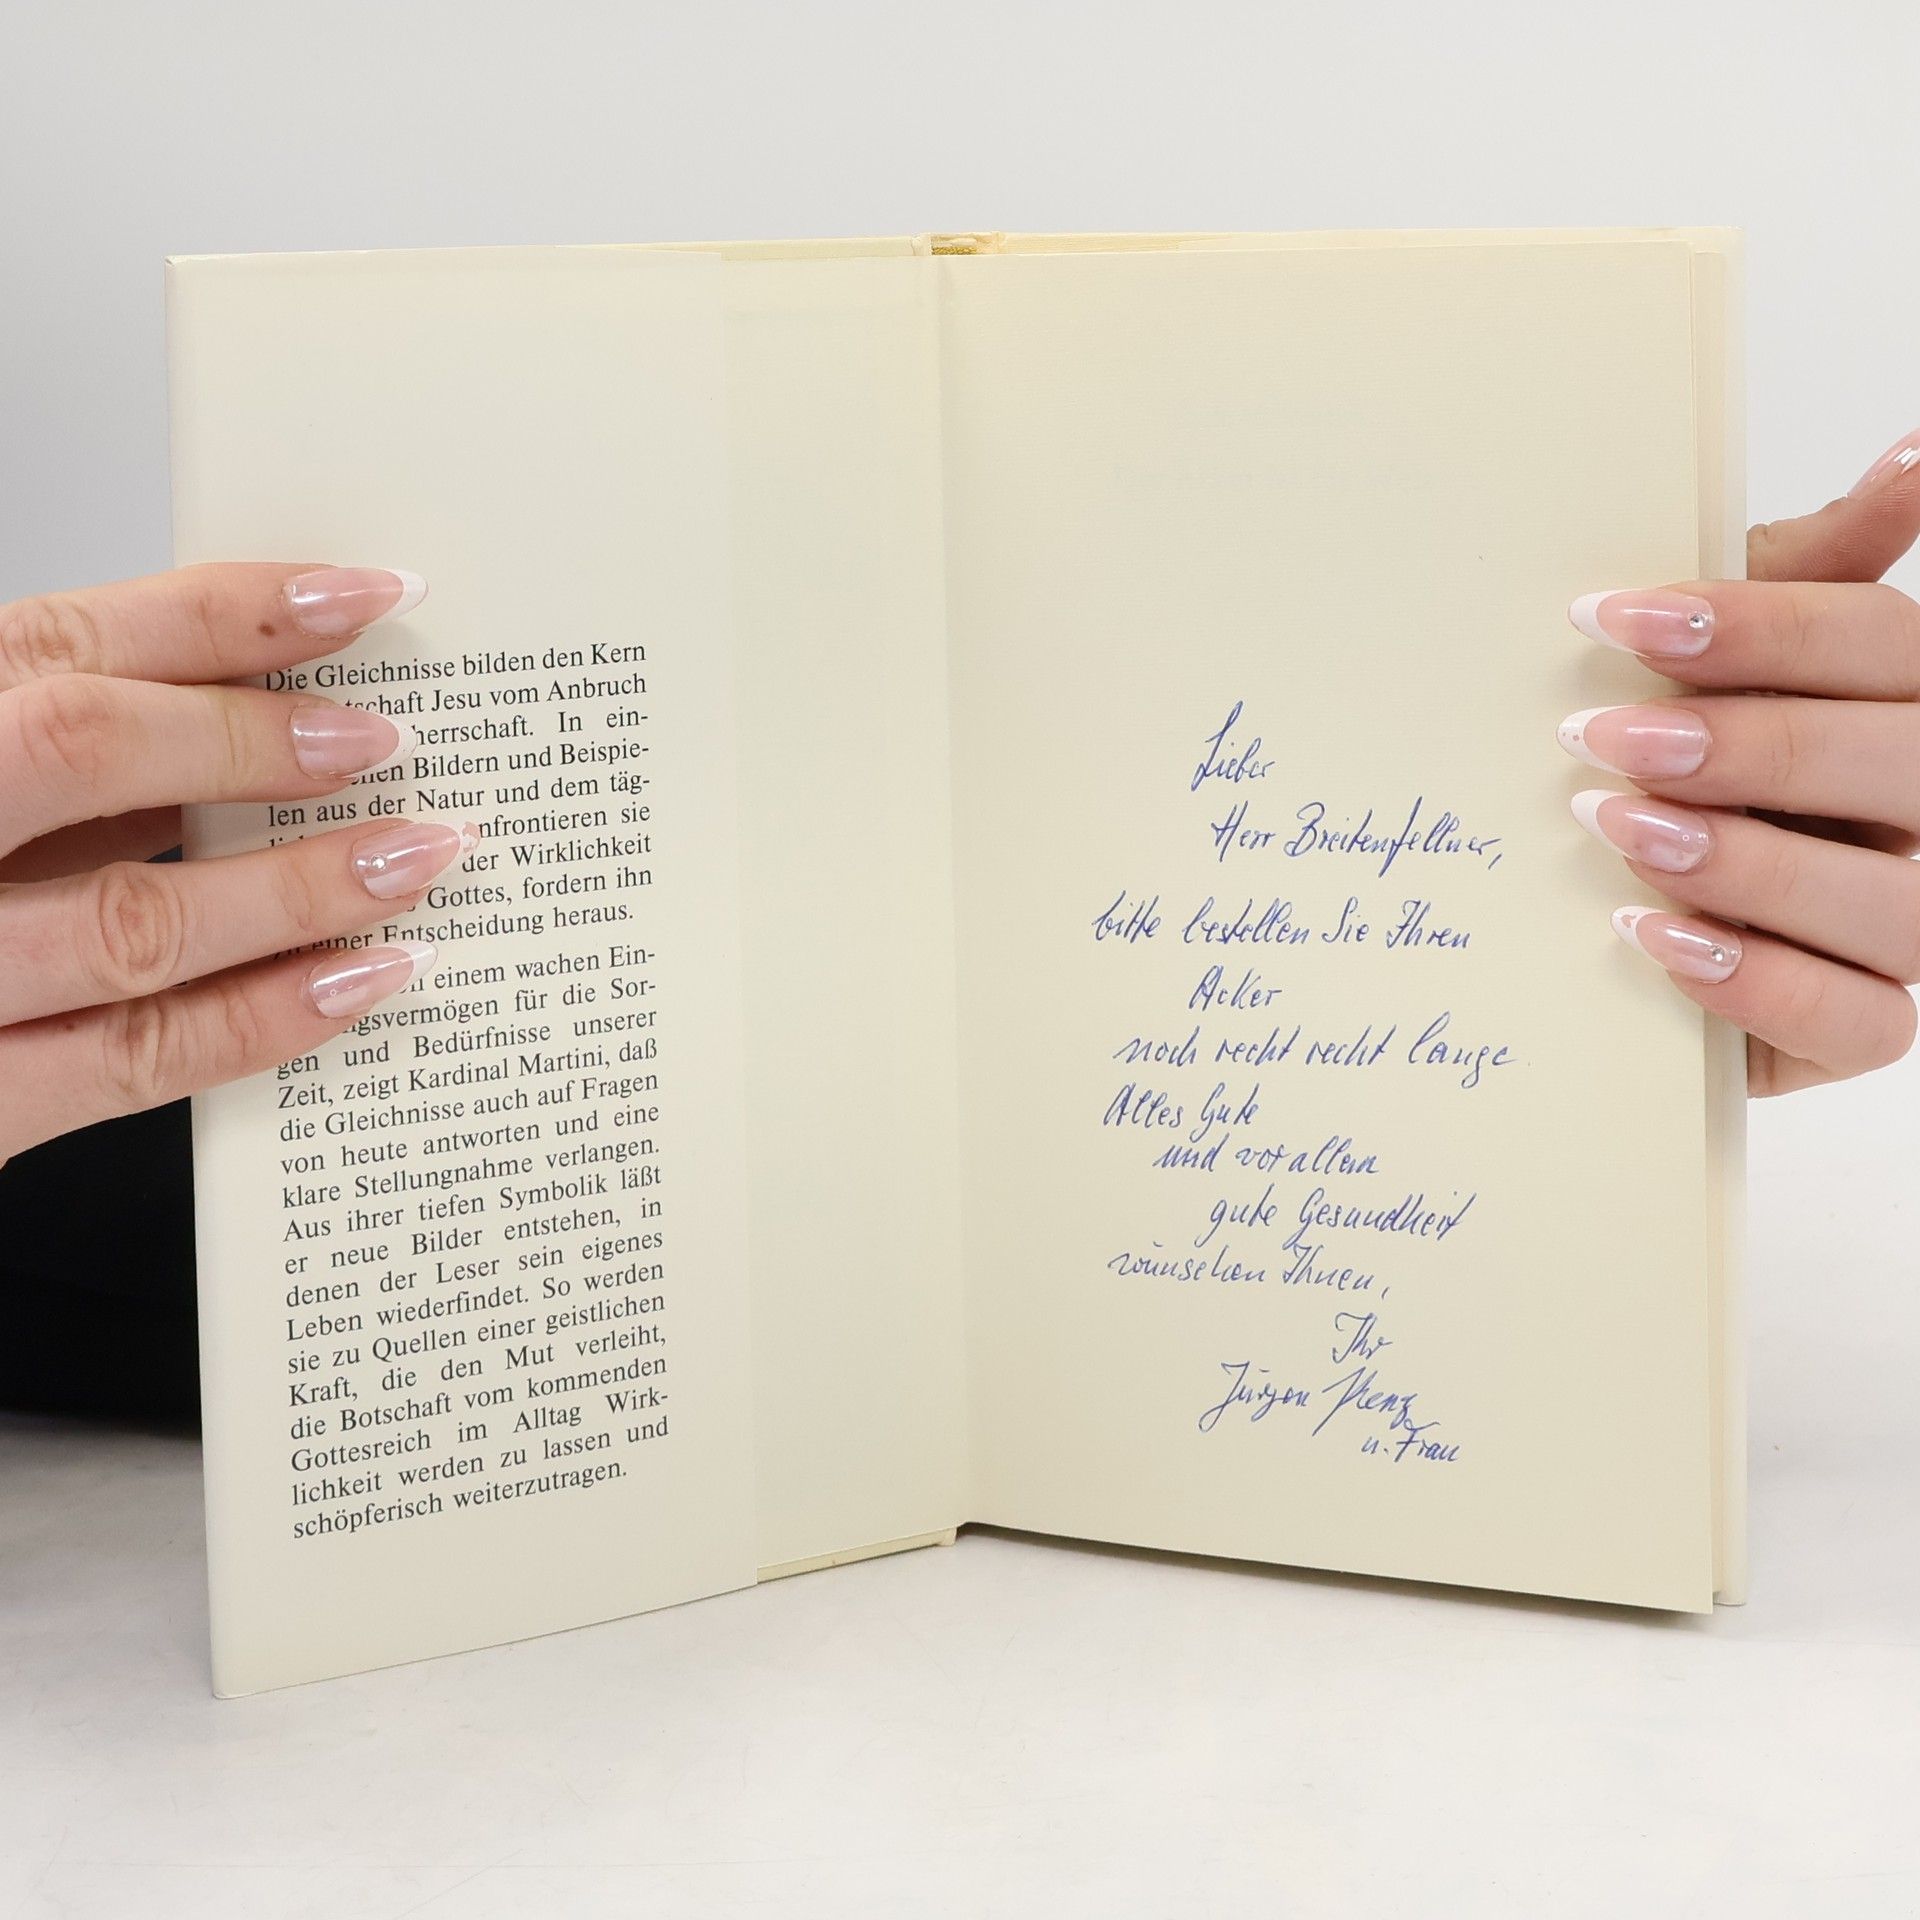 Die Gleichnisse bilden den Kern
tschaft Jesu vom Anbruch
herrschaft. In ein-
Bildern und Beispie-
len aus der Natur und dem täg-
nfrontieren sie
der Wirklichkeit
Gottes, fordern ihn
einer Entscheidung heraus.
einem wachen Ein-
gsvermögen für die Sor-
gen und Bedürfnisse unserer
Zeit, zeigt Kardinal Martini, daß
die Gleichnisse auch auf Fragen
von heute antworten und eine
klare Stellungnahme verlangen.
Aus ihrer tiefen Symbolik läßt
er neue Bilder entstehen, in
denen der Leser sein eigenes
Leben wiederfindet. So werden
sie zu Quellen einer geistlichen
Kraft, die den Mut verleiht,
die Botschaft vom kommenden
Gottesreich im Alltag Wirk-
lichkeit werden zu lassen und
schöpferisch weiterzutragen.
Lieber
Herr Breitenfellner,
bitte bestellen Sie Ihren
Acker
noch recht recht lange
Alles Gute
und vor allem
gute Gesundheit
wünschen Ihnen,
Ihr
Jürgen
u. Frau